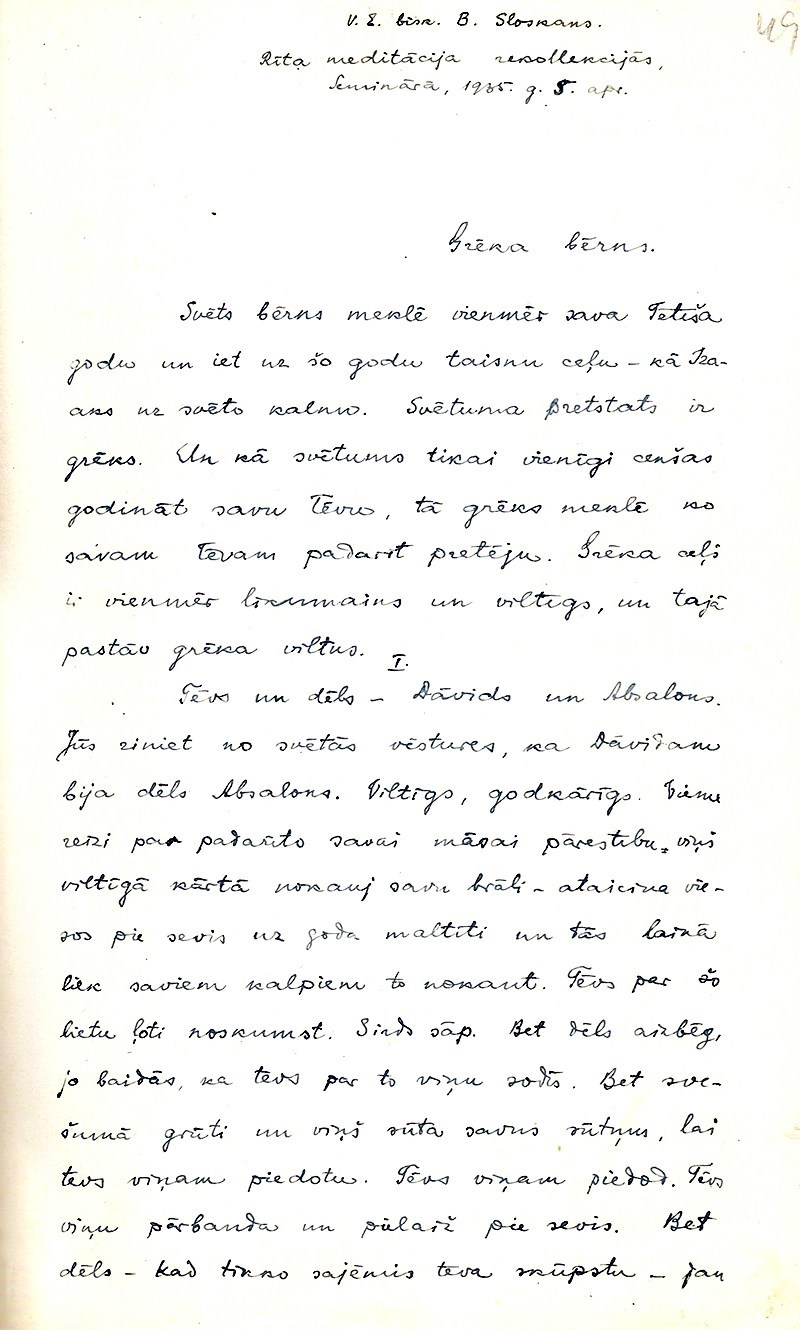 V. E. bisk. B. Sloskans.
49
Rīta meditācija rekollekcijās,
Seminārā, 1935. g. 5. apr.
Grēka bērns.
Svēts bērns meklē vienmēr sava Tētiša
godu un iet uz šo godu taisnu ceļu – kā Iza-
aks uz svēto kalnu. Svētuma pretstats ir
grēks. Un kā svētums tikai vienīgi cenšas
godināt savu Tēvu, tā grēks meklē ko
savam tēvam padarīt pretēju. Grēka ceļš
ir vienmēr līkumains un viltīgs, un tajā
pastāv grēka viltus.
I.
Tēvs un dēls – Dāvids un Absalons.
Jūs ziniet no svētās vēstures, ka Dāvidam
bija dēls Absalons. Viltīgs, godkārīgs. Vienu
reizi par padarīto savai māsai pārestību, viņš
viltīgā kārtā nokauj savu brāli – ataicina vie-
sos pie sevis uz goda maltīti un tās laikā
liek saviem kalpiem to nokaut. Tēvs par šo
lietu ļoti noskumst. Sirds sāp. Bet dēls aizbēg,
jo baidās, ka tēvs par to viņu sodīs. Bet sve-
šumā grūti un viņš sūta savus sūtņus, lai
tēvs viņam piedotu. Tēvs viņam piedod. Tēvs
viņu pārbauda un pielaiž pie sevis. Bet
dēls – kad tikko saņēmis tēva skūpstu – jau